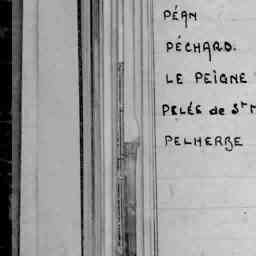 PÉAN
PÉCHARD.
LE PEIGNE
PELÉE de St M
PELHERBE